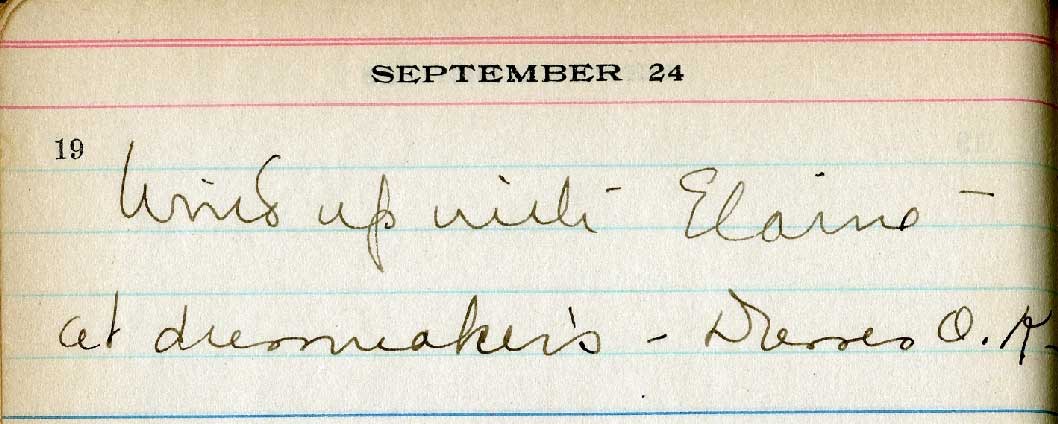 SEPTEMBER 24
19
Wind up with Elaine –
at dressmaker's – Dresses O.K.